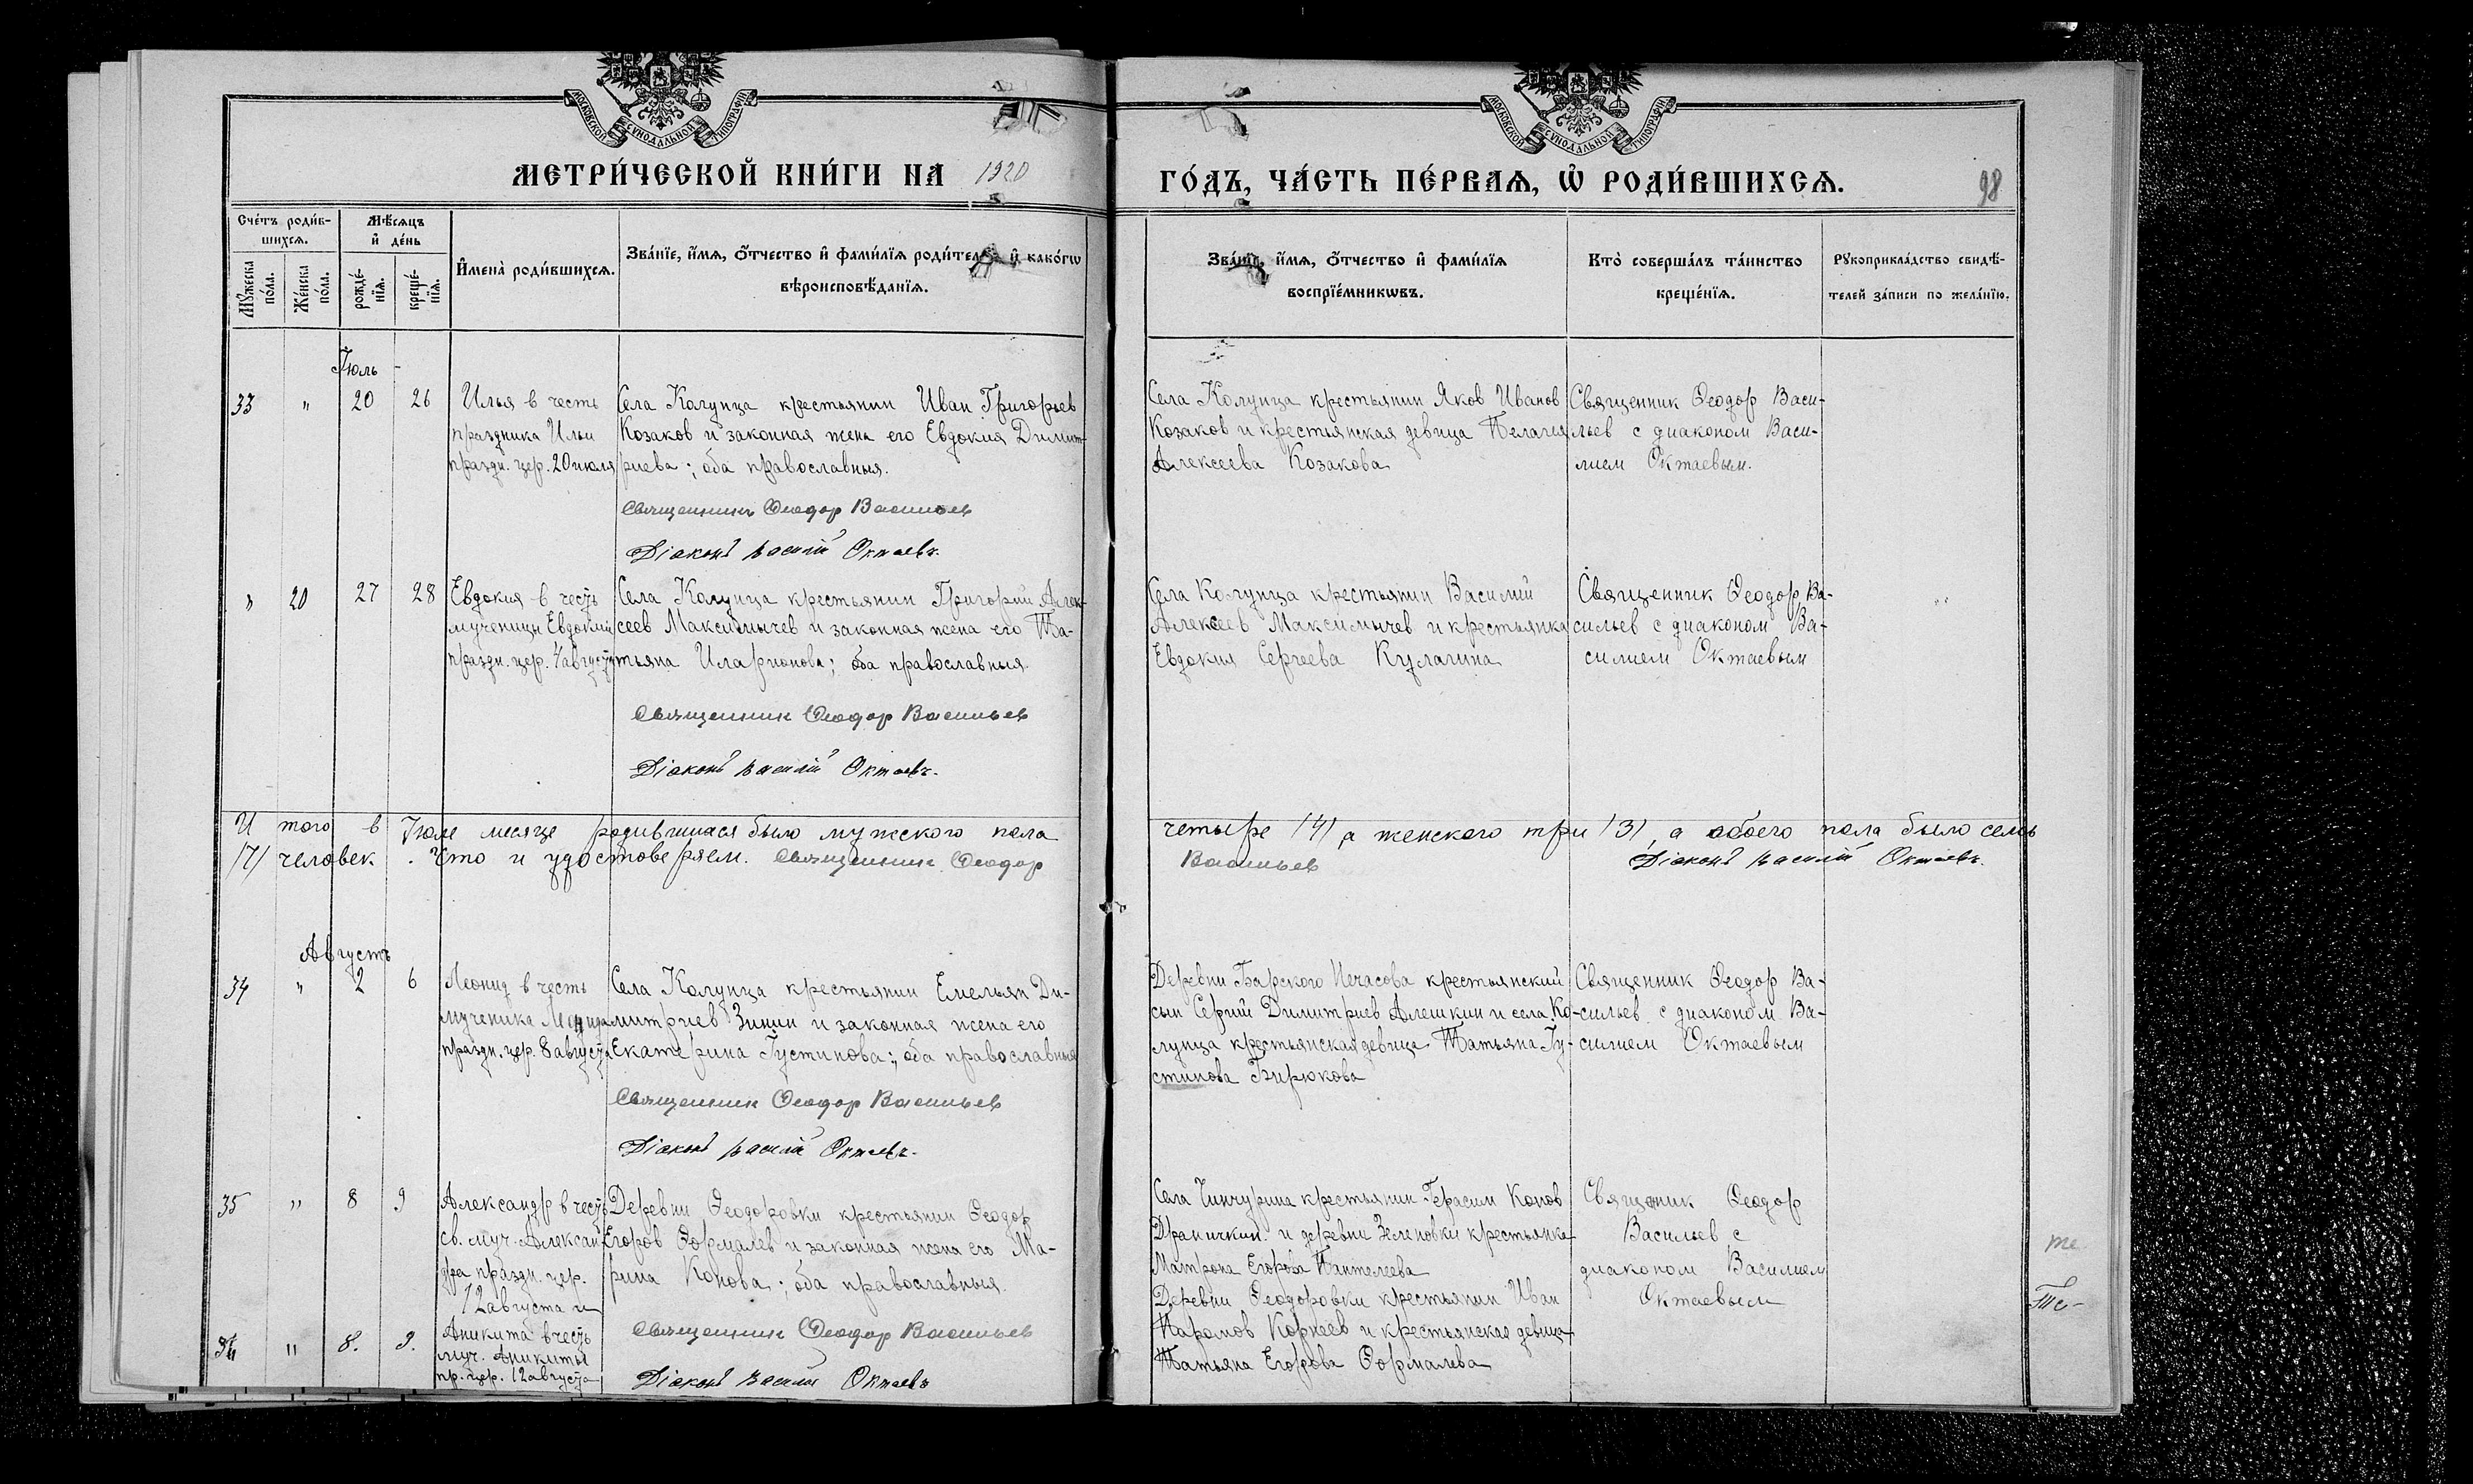 МОСКОВСКОЙ СУНОДАЛЬНОЙ ТИПОГРАФІИ
МОСКОВСКОЙ СУНОДАЛЬНОЙ ТИПОГРАФІИ
МЕТРИ́ЧЕСКОЙ КНИ́ГИ НА 1920
ГО́ДЪ, ЧА́СТЬ ПЕ́РВАѦ, Ѡ҆ РОДИ́ВШИХСѦ.
98
Сче́тъ роди́в-
шихсѧ.
Мꙋ́жеска по́ла.
Же́нска по́ла.
Мѣ́сѧцъ
и҆ де́нь
рожде́-
нїѧ.
креще́-
нїѧ.
И҆мена̀ роди́вшихсѧ.
Зва́нїе, и҆́мѧ, ѻ҆́тчество и҆ фами́лїѧ роди́телей и҆ како́гѡ
вѣроисповѣ́данїѧ.
Зва́нїе, и҆́мѧ, ѻ҆́тчество и҆ фами́лїѧ
воспрїе́мникѡвъ.
Кто̀ соверша́лъ та́инство
креще́нїѧ.
Рꙋкоприкла́дство свидѣ́-
телей за́писи по жела́нїю.
Іюль -
33 " 20 26
Илья в честь
праздника Ильи
праздн. цер. 20 июля
Села Колунца крестьянин Иван Григорьев
Козаков и законная жена его Евдокия Димит-
риева; оба православныя.
Священникъ Ѳеодор Васильев
Діаконъ Василій Октаевъ.
Села Колунца крестьянин Яков Иванов
Козаков и крестьянская девица Пелагея
Алексеева Козакова
Священник Ѳеодор Васи-
льев с диаконом Васи-
лием Октаевым.
" 20 27 28
Евдокия в честь
мученицы Евдокии
праздн. цер. 4 августа
Села Колунца крестьянин Григорий Алек-
сеев Максимычев и законная жена его Та-
тьяна Иларионова; оба православныя.
Священник Ѳеодор Васильев
Діаконъ Василій Октаевъ.
Села Колунца крестьянин Василий
Алексеев Максимычев и крестьянка
Евдокия Сергеева Кулагина
Священник Ѳеодор Ва-
сильев с диаконом Ва-
силием Октаевым
И того в Июле месяце родившихся было мужского пола четыре /4/, а женского три /3/, а обоего пола было семь
/7/ человек. Что и удостоверяем. Священник Ѳеодор Васильев Діаконъ Василій Октаевъ.
Августъ
34 " 2 6
Леонид в честь
мученика Леонида
праздн. цер. 8 августа
Села Колунца крестьянин Емельян Ди-
митриев Зинин и законная жена его
Екатерина Густинова; оба православныя
Священник Ѳеодор Васильев
Діаконъ Василій Октаевъ.
Деревни Барского Печасова крестьянский
сын Сергий Димитриев Алешкин и села Ко-
лунца крестьянская девица Татьяна Гу-
стинова Бирюкова
Священник Ѳеодор Ва-
сильев с диаконом Ва-
силием Октаевым
35 " 8 9
Александр в честь
св. муч. Алексан-
дра праздн. цер.
12 августа и
Деревни Ѳеодоровки крестьянин Ѳеодор
Егоров Формалев и законная жена его Ма-
рина Конова; оба православныя.
Священник Ѳеодор Васильев
Діаконъ Василій Октаевъ
Села Чинчурина крестьянин Герасим Конов
Драничкин и деревни Зеленовки крестьянка
Матрона Егорова Пантелеева
Священик Ѳеодор
Васильев с
диаконом Василием
Октаевым
36 " 8. 9.
Аникита в честь
муч. Аникиты
пр. цер. 12 августа
Деревни Ѳеодоровки крестьянин Иван
Парамов Корнеев и крестьянская девица
Татьяна Егорова Формалева